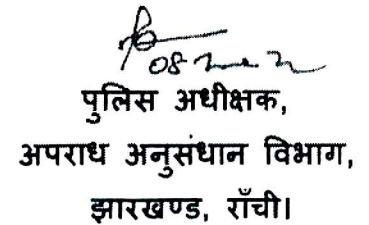 पुलिस अधीक्षक,
अपराध अनुसंधान विभाग,
झारखण्ड, राँची।